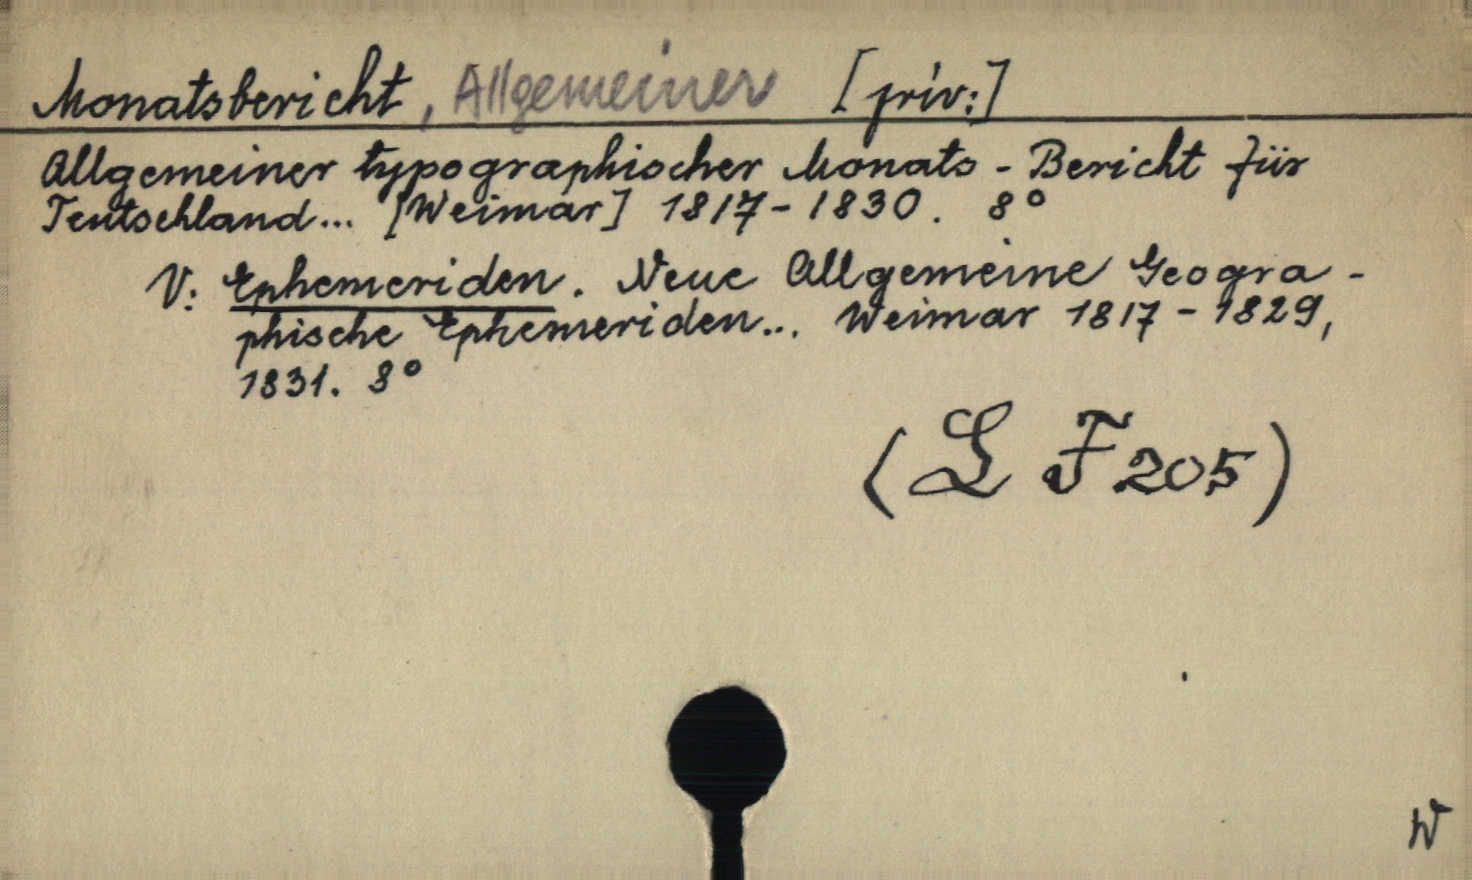 Monatsbericht, Allgemeiner [priv:]
Allgemeiner typographischer Monats-Bericht für
Teutschland... [Weimar] 1817-1830. 8°
V: Ephemeriden. Neue Allgemeine Geogra-
phische Ephemeriden... Weimar 1817-1829,
1831. 8°
(L F 205)
W